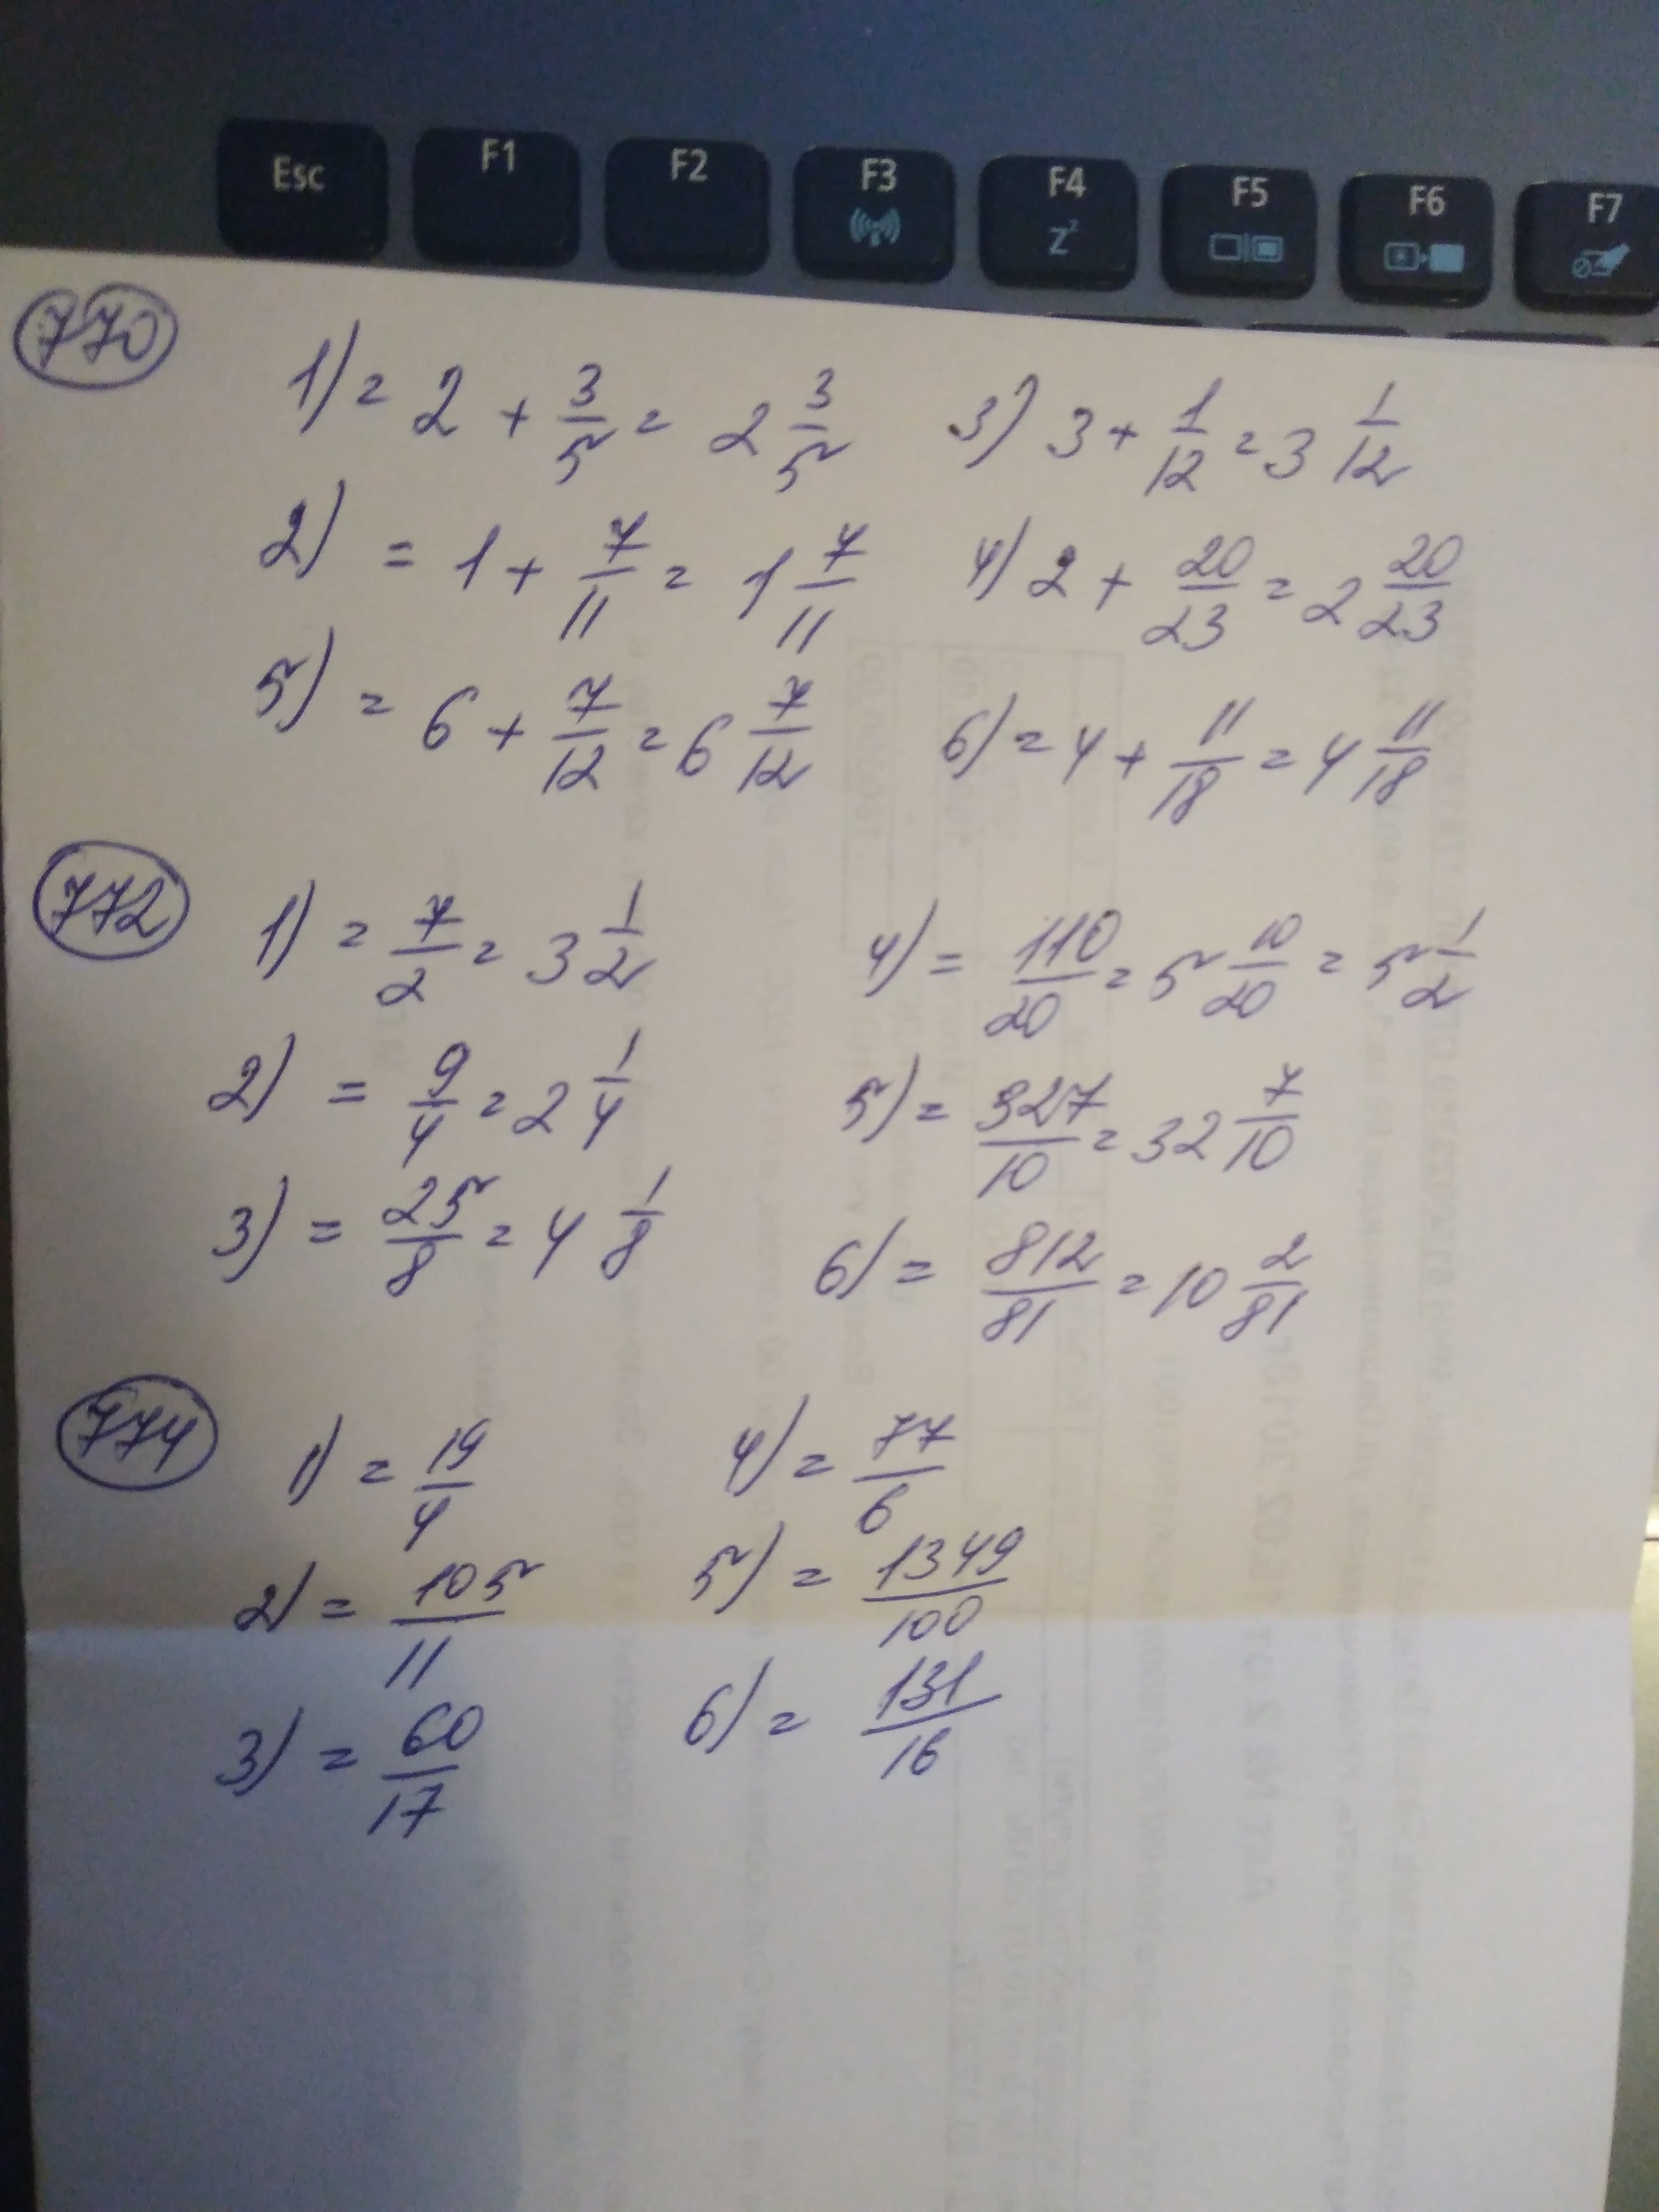 Esc F1 F2 F3 F4 F5 F6 F7
Zz
770
1) = 2 + 3/5 = 2 3/5 3) 3 + 1/12 = 3 1/12
2) = 1 + 7/11 = 1 7/11 4) 2 + 20/23 = 2 20/23
5) = 6 + 7/12 = 6 7/12 6) = 4 + 11/18 = 4 11/18
772
1) = 7/2 = 3 1/2 4) = 110/20 = 5 10/20 = 5 1/2
2) = 9/4 = 2 1/4 5) = 327/10 = 32 7/10
3) = 25/8 = 4 1/8 6) = 812/81 = 10 2/81
774
1) = 19/4 4) = 77/6
2) = 105/11 5) = 1349/100
3) = 60/17 6) = 131/16